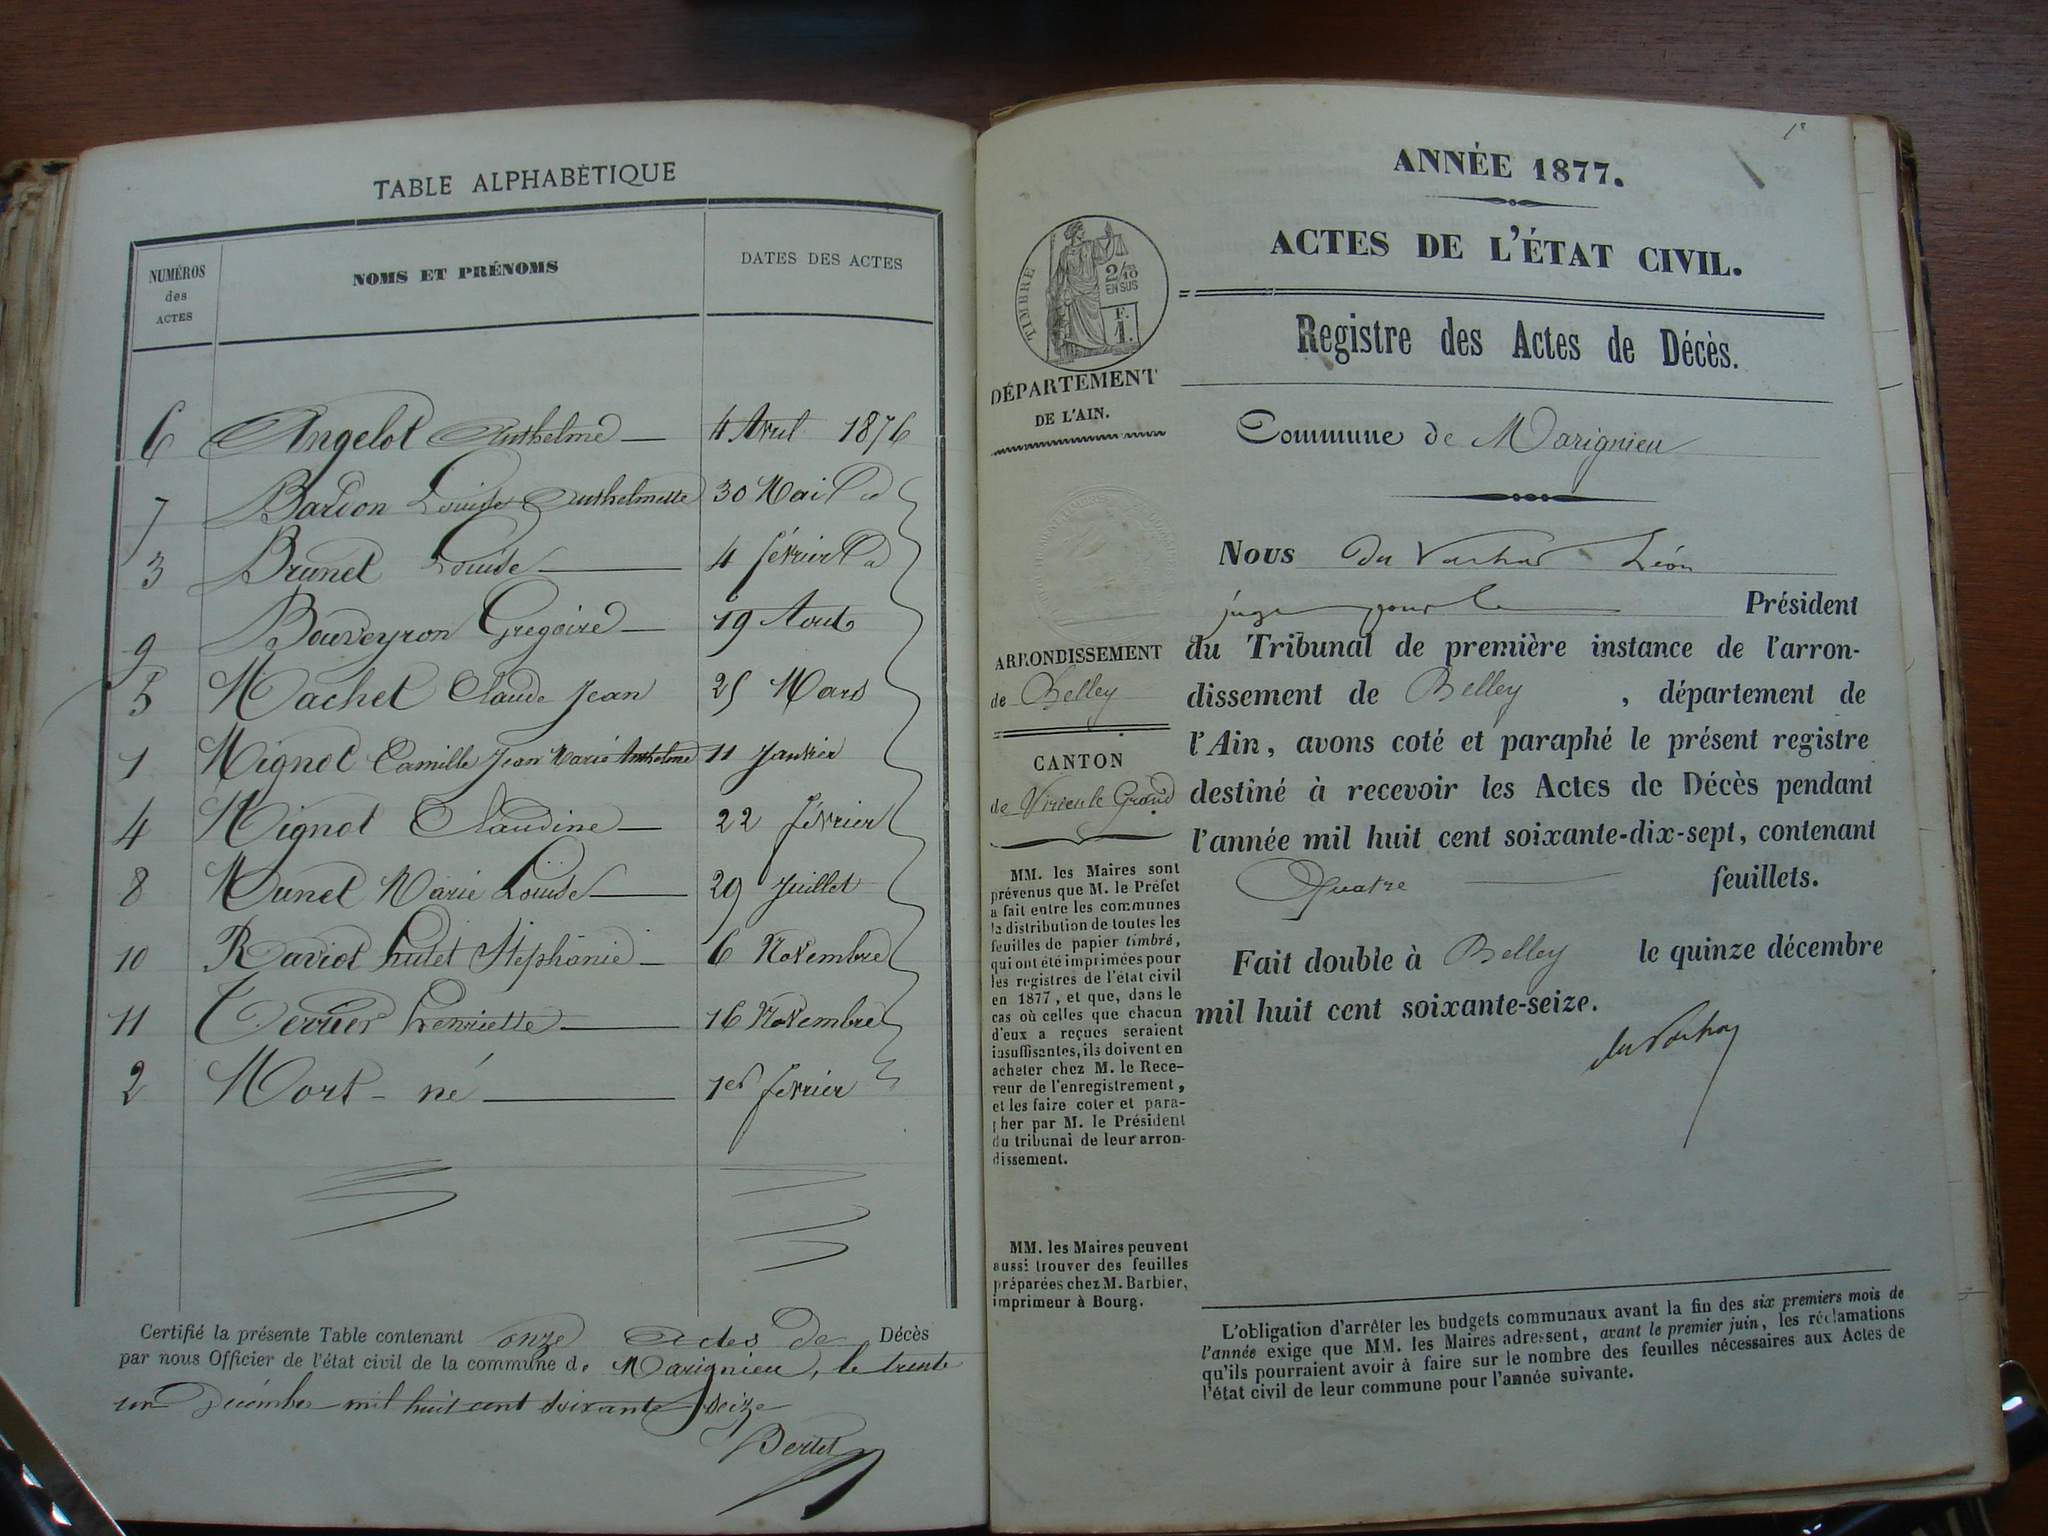 TABLE ALPHABÉTIQUE
NUMÉROS des ACTES
NOMS ET PRÉNOMS
DATES DES ACTES
6 Angelot Anthelme 4 Avril 1876
7 Bardon Louise Anthelmette 30 Mai
3 Brunet Louise 4 février
9 Bouveyron Gregoire 19 Aout
5 Machet Claude Jean 25 Mars
1 Mignot Camille Jean Marie Anthelme 11 Janvier
4 Mignot Claudine 22 février
8 Munet Marie Louise 29 Juillet
10 Raviot Stéphanie 6 Novembre
11 Terrier henriette 16 Novembre
2 Mort-né 1er février
Certifié la présente Table contenant onze actes de Décès
par nous Officier de l'état civil de la commune de Marignieu, le trente
un Décembre mil huit cent soixante seize
Bertet
1e
ANNÉE 1877.
ACTES DE L'ÉTAT CIVIL.
TIMBRE
2/10
EN SUS
F.
1.
Registre des Actes de Décès.
DÉPARTEMENT
DE L'AIN.
Commune de Marignieu
Nous Léon
juge pour le Président
du Tribunal de première instance de l'arron-
dissement de Belley, département de
l'Ain, avons coté et paraphé le présent registre
destiné à recevoir les Actes de Décès pendant
l'année mil huit cent soixante-dix-sept, contenant
Quatre feuillets.
Fait double à Belley le quinze décembre
mil huit cent soixante-seize.
ARRONDISSEMENT
de Belley
CANTON
de Virieu le Grand
MM. les Maires sont
prévenus que M. le Préfet
a fait entre les communes
la distribution de toutes les
feuilles de papier timbré,
qui ont été imprimées pour
les registres de l'état civil
en 1877, et que, dans le
cas où celles que chacun
d'eux a reçues seraient
insuffisantes, ils doivent en
acheter chez M. le Rece-
veur de l'enregistrement,
et les faire coter et para-
pher par M. le Président
du tribunal de leur arron-
dissement.
MM. les Maires peuvent
aussi trouver des feuilles
préparées chez M. Barbier,
imprimeur à Bourg.
L'obligation d'arrêter les budgets communaux avant la fin des six premiers mois de
l'année exige que MM. les Maires adressent, avant le premier juin, les réclamations
qu'ils pourraient avoir à faire sur le nombre des feuilles nécessaires aux Actes de
l'état civil de leur commune pour l'année suivante.